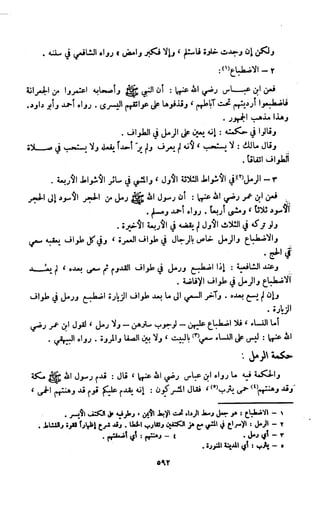 ولكن إن وجدت خلوة فاستلم ، وإلا فكبر وامض » رواه الشافعي في سننه .
٢ - الاضطباع(١) :
فعن ابن عباس رضي الله عنهما : أن النبي ﷺ وأصحابه اعتمروا من الجعرانة
فاضطبعوا أرديتهم تحت آباطهم ، وقذفوها على عواتقهم اليسرى . رواه أحمد وأبو داود .
وهذا مذهب الجمهور .
وقالوا في حكمته : إنه يعين على الرمل في الطواف .
وقال مالك : لا يستحب ، لأنه لم يعرف ولم ير أحداً يفعله ولا يستحب في صلاة
الطواف اتفاقاً .
٣ - الرمل(٢) في الأشواط الثلاثة الأول ، والمشي في سائر الأشواط الأربعة .
فعن ابن عمر رضي الله عنهما : أن رسول الله ﷺ رمل من الحجر الأسود إلى الحجر
الأسود ثلاثاً ، ومشى أربعاً . رواه أحمد ومسلم .
ولو تركه في الثلاث الأول لم يقضه في الأربعة الأخيرة .
والاضطباع والرمل خاص بالرجال في طواف العمرة ، وفي كل طواف يعقبه سعي
في الحج .
وعند الشافعية : إذا اضطبع ورمل في طواف القدوم ثم سعى بعده ، لم يعد
الاضطباع والرمل في طواف الإفاضة .
وإن لم يسع بعده . وآخر السعي إلى ما بعد طواف الزيارة اضطبع ورمل في طواف
الزيارة .
أما النساء ، فلا اضطباع عليهن - لوجوب سترهن - ولا رمل ، لقول ابن عمر رضي
الله عنهما : ليس على النساء سعي(٣) بالبيت ، ولا بين الصفا والمروة . رواه البيهقي .
حكمة الرمل :
والحكمة فيه ما رواه ابن عباس رضي الله عنهما ، قال : قدم رسول الله ﷺ مكة
وقد وهنتهم(٤) حمى يثرب(٥) ، فقال المشركون : إنه يقدم عليكم قوم قد وهنتهم الحمى ،
١ - الاضطباع : هو جعل وسط الرداء تحت الإبط الأيمن ، وطرفيه على الكتف الأيسر .
٢ - الرمل : الإسراع في المشي مع هز الكتفين وتقارب الخطا . وقد شرع إظهاراً للقوة والنشاط .
٣ - أي رمل . ٤ - وهنتهم : أي أضعفتهم .
٥ - يثرب : أي المدينة المنورة .
٥٩٢